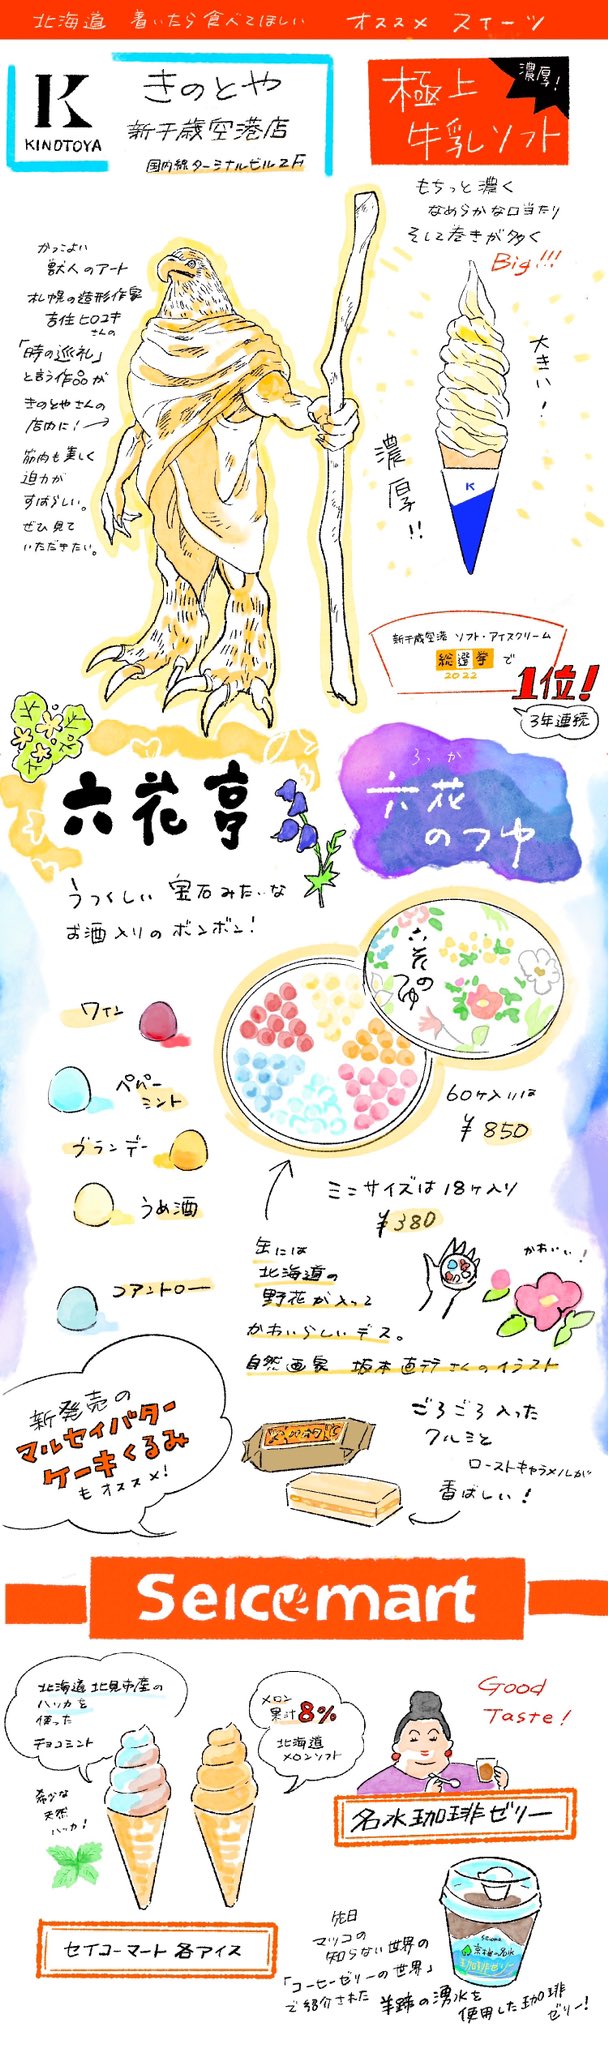 北海道 着いたら食べてほしい オススメ スイーツ
K
KINOTOYA
きのとや
新千歳空港店
国内線ターミナルビル2F
極上
牛乳ソフト
濃厚!
もちっと濃く
なめらかな口当たり
そして巻きが多く
Big!!!
大きい!
濃厚!!
K
かっこよい
獣人のアート
札幌の造形作家
吉住ヒロユキ
さんの
「時の巡礼」
と言う作品が
きのとやさんの
店内に!
筋肉も美しく
迫力が
すばらしい。
ぜひ見て
いただきたい。
新千歳空港 ソフト・アイスクリーム
総選挙で
2022
1位!
3年連続
六花亭
ろっか
六花
のつゆ
うつくしい 宝石みたいな
お酒入りのボンボン!
六花の
つゆ
ワイン
ペパー
ミント
ブランデー
うめ酒
コアントロー
60ケ入りは
¥850
ミニサイズは18ケ入り
¥380
缶には
北海道の
野花が入って
かわいらしいデス。
自然画家 坂本直行さんのイラスト
かわいい!
新発売の
マルセイバター
ケーキくるみ
もオススメ!
ごろごろ入った
クルミと
ローストキャラメルが
香ばしい!
Seicomart
北海道 北見市産の
ハッカを
使った
チョコミント
メロン
果汁8%
北海道
メロンソフト
希少な
天然
ハッカ!
セイコーマート 各アイス
Good
Taste!
名水珈琲ゼリー
Secoma
京極の名水
珈琲ゼリー
先日
マツコの
知らない世界の
「コーヒーゼリーの世界」
で紹介された
羊蹄の湧水を
使用した珈琲
ゼリー!